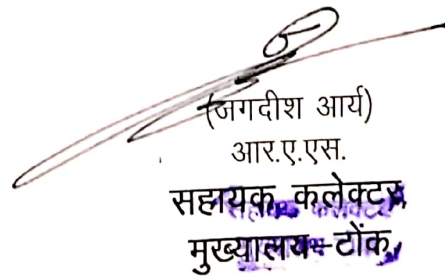 (जगदीश आर्य)
आर.ए.एस.
सहायक कलेक्टर
मुख्यालय-टोंक